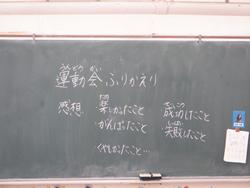 運動会ふりかえり
感想 楽しかったこと 成功したこと
がんばったこと 失敗したこと
くやしかったこと…